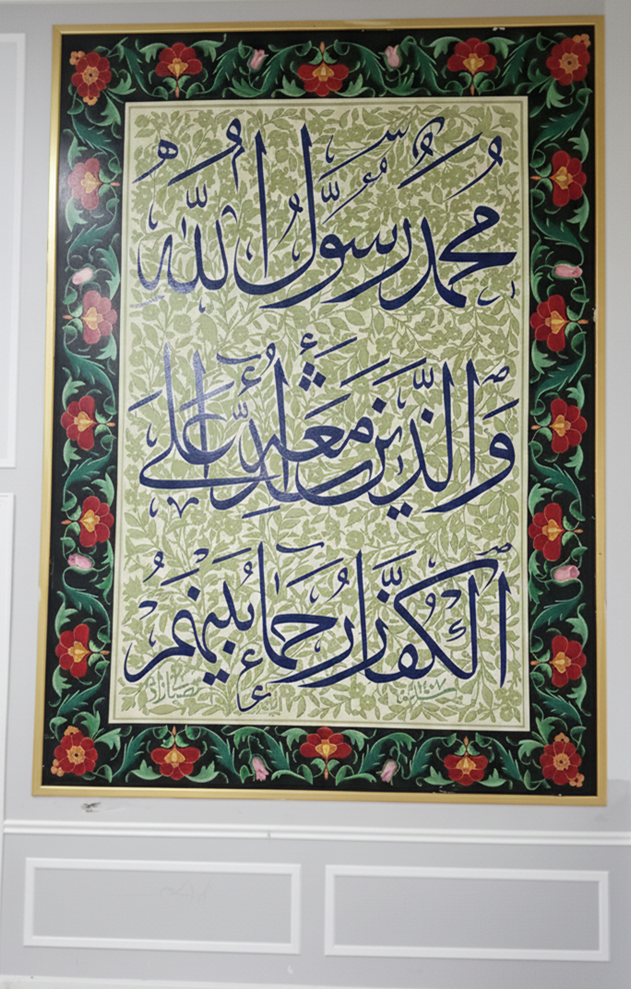 محمد رسول الله
والذین معه اشداء علی
الکفار رحماء بینهم
۱۴۰۷